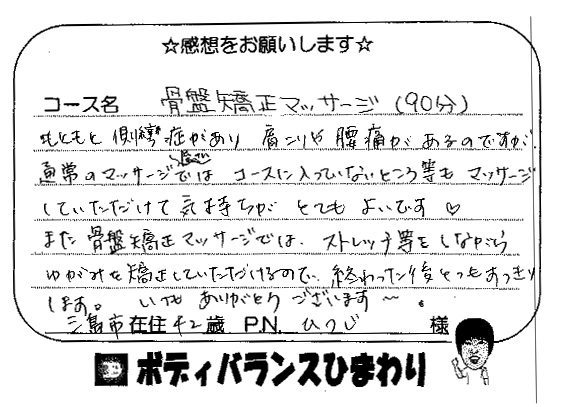 ☆感想をお願いします☆
コース名 骨盤矯正マッサージ (90分)
もともと側弯症があり 肩こりや腰痛があるのですが、
通常のマッサージでは コースに入っていないところ等も マッサージ
していただけて 気持ちが とても よいです♡
また 骨盤矯正マッサージでは、ストレッチ等をしながら
ゆがみを矯正していただけるので、終わった後とってもすっきり
します。 いつも ありがとうございます〜。
三島市在住 42歳 P.N. ひつじ 様
ボディバランスひまわり